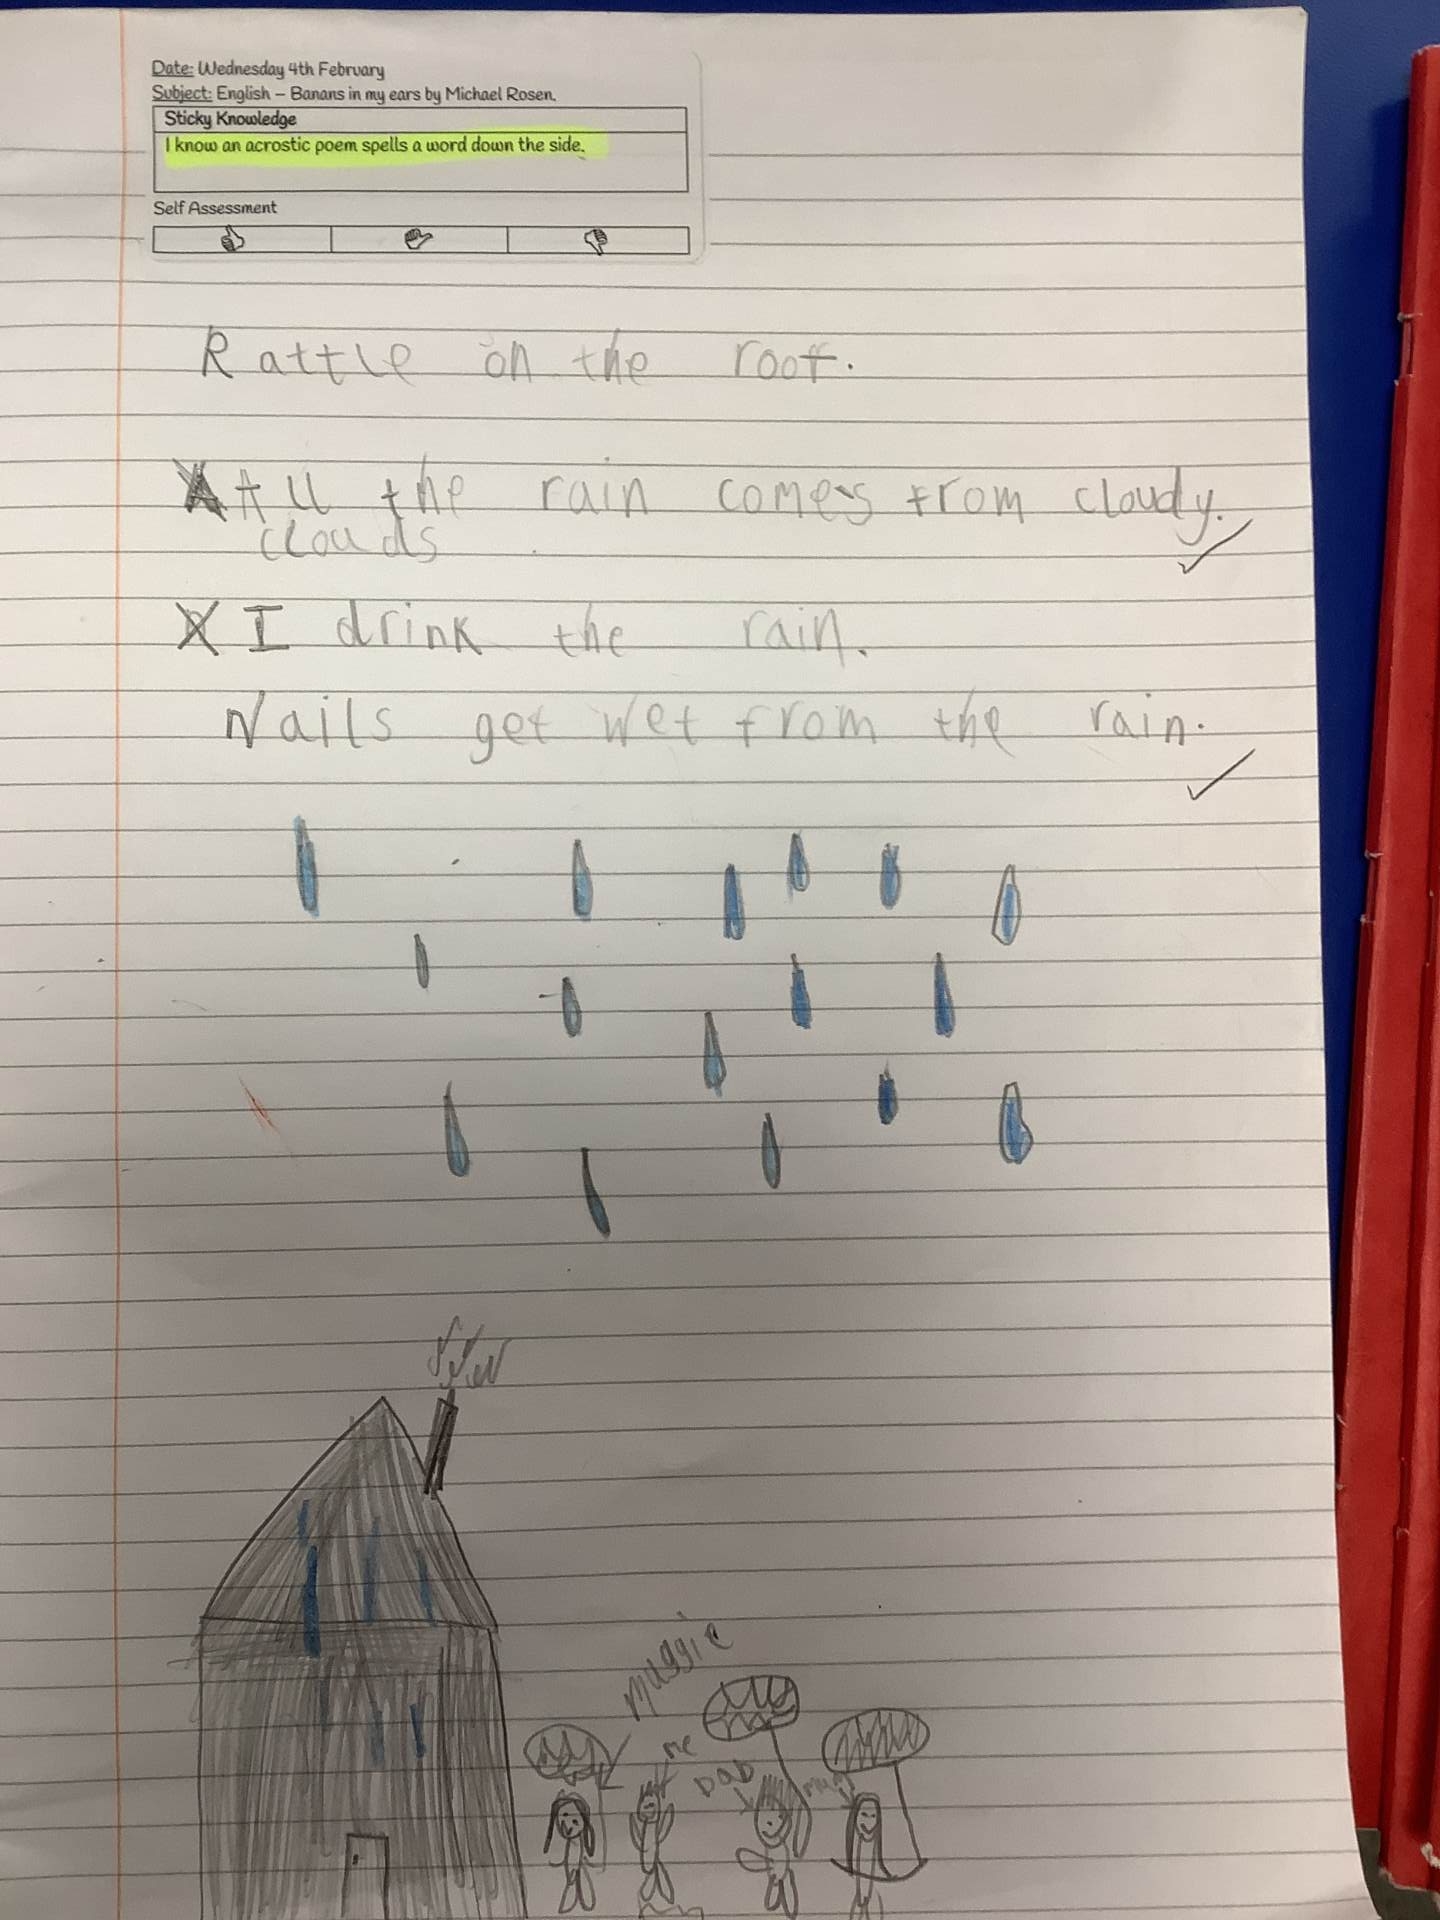 Date: Wednesday 4th February
Subject: English – Banans in my ears by Michael Rosen.
Sticky Knowledge
I know an acrostic poem spells a word down the side.
Self Assessment
Rattle on the roof.
All the rain comes from cloudy.
clouds
I drink the rain.
Nails get wet from the rain.
Maggie
me
DAD
mum